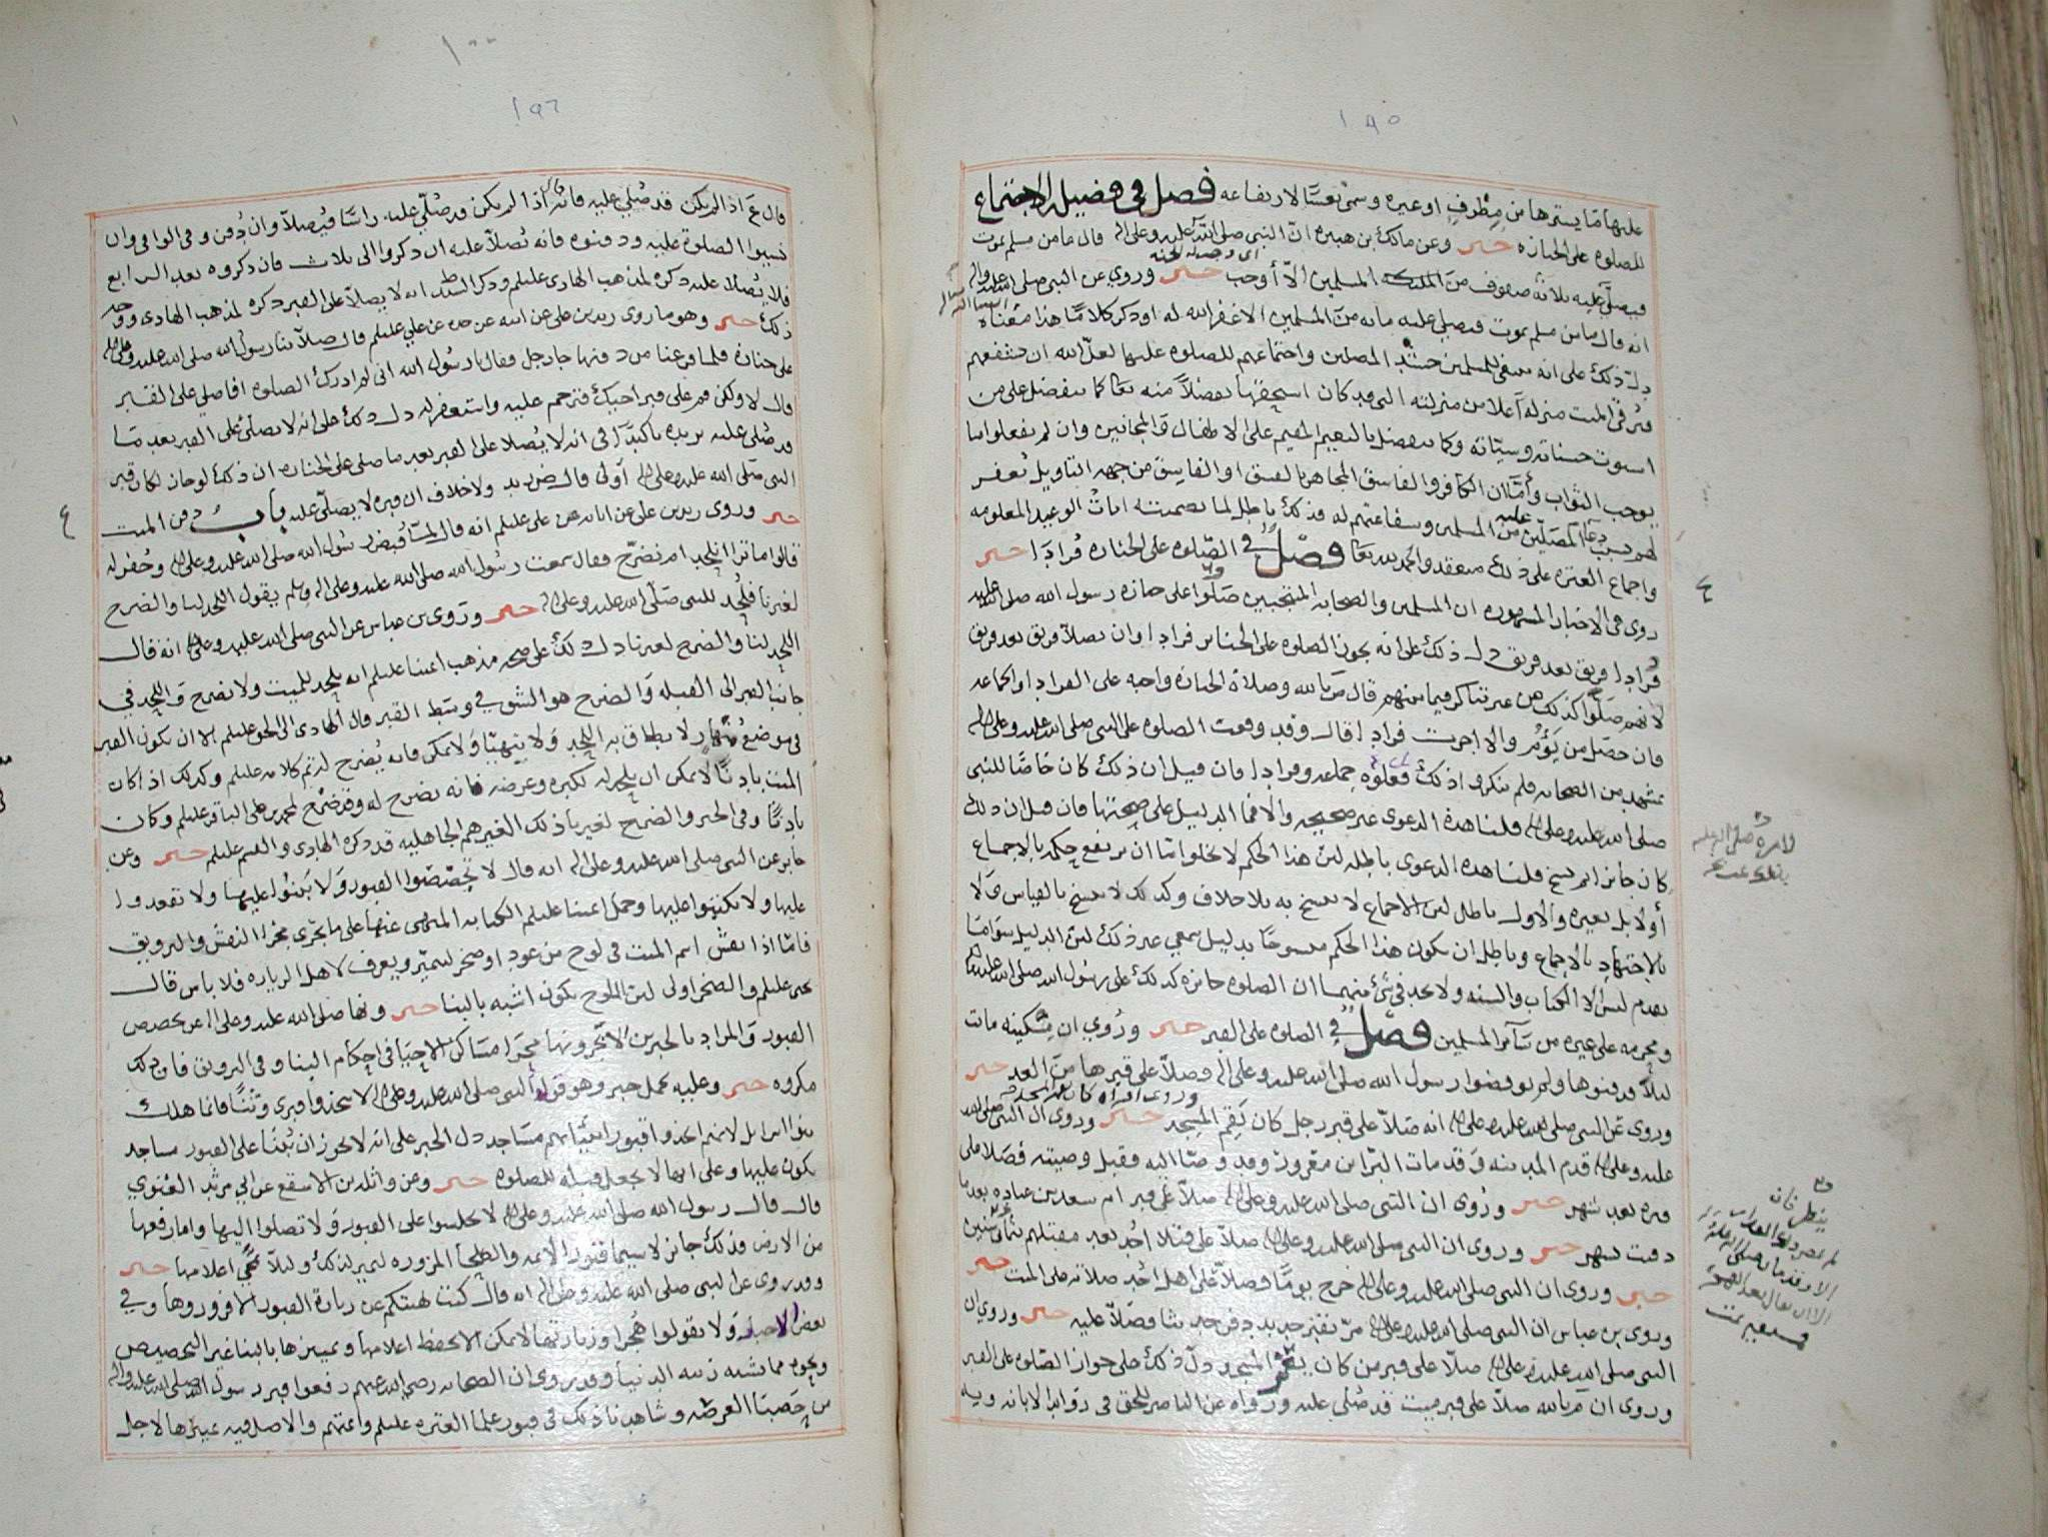 ١٩٥
عليها ما يسترها من مطرف او غيره وسمي نعشا لارتفاعه فصل في فضيلة الاجتماع
للصلوة على الجنازه خبر وعن مالك بن هبيره انّ النبي صلى الله عليه وعلى اله قال ما من مسلم يموت
فيصلّي عليه ثلاثة صفوف من المسلمين الاّ أوجب خبر وروي عن النبي صلى الله عليه واله
اي وجبت له الجنه
انه قال ما من مسلم يموت فيصلي عليه مائه من المسلمين الا غفر الله له او ذكر كلامًا هذا معناه
دلّ ذلك على انه ينبغي للمسلمين حشد المصلين واجتماعهم للصلوة عليها لعلّ الله ان يشفعهم
فيرقى الميت منزله أعلا من منزلته التي قد كان استحقها تفضلاً منه تعا كما يتفضل على من
استوت حسناته وسيئاته وكما يتفضل بالنعيم المقيم على الاطفال والمجانين وان لم يفعلوا ما
يوجب الثواب وأمّا ان الكافر والفاسق المجاهر بالفسق او الفاسق من جهه التاويل يُغفر
لهم بسبب دعآ المصلّين عليه من المسلمين وشفاعتهم له فذلك باطل لما تضمنته ايات الوعيد المعلومه
واجماع العتره على ذلك منعقد والحمد لله تعا فصل في الصّلوه على الجنازه فُرادَا خبر
روى في الاخبار المشهوره ان المسلمين والصحابه المنتجبين صَلّوا على جنازه رسول الله صلى الله عليه
فُرادا فريق بعد فريق دل ذلك على انه يجوز الصلوه على الجنائز فرادا وان يصلا فريق بعد فريق
لانهم صَلّوا كذلك من غير تناكر فيما بينهم قال م بالله وصلاة الجنازة واجبه على الفرادا والجماعه
فان حصل من يَؤُمّ والا اجزت فرادا قال وقد وقعت الصلوه على النبي صلى الله عليه وعلى اله
بمشهد من الصحابه فلم ينكروا ذلك فعلوه جماعه وفرادا فان قيل ان ذلك كان خاصّا للنبي
صلى الله عليه وعلى اله قلنا هذه الدعوى غير صحيحه والا فما الدليل على صحتها فان قيل ان ذلك
كان جائزا ثم نسخ قلنا هذه الدعوى باطله لان هذا الحكم لا يخلوا اما ان يرتفع حكمه بالاجماع
أولا بل بغيره والاول باطل لان الاجماع لا ينسخ به بلا خلاف وكذلك لا ينسخ بالقياس وَلا
بالاجتهاد بالاجماع وباطل ان يكون هذا الحكم منسوخًا بدليل سمعي غير ذلك لان الدليل سوا ما
تقدم ليس الا الكتاب والسنه ولا نجد في شيء منهما ان الصلوه جائزه كذلك على رسول الله صلى الله عليه
ومحرمه على غيره من سَآئر المسلمين فصل في الصلوه على القبر خبر ورُوي ان مِسْكينه ماتت
ليلاً فدفنوها ولم يوقظوا رسول الله صلى الله عليه وعلى اله فصلاّ على قبرها من الغد خبر
وروى عن النبي صلى الله عليه وعلى اله انه صَلاّ على قبر رجل كان يَقُم المسجد خبر وروى ان النبي صلى الله
عليه وعلى اله قدم المدينه وقد مات البرا بن معرور وقد وصّا اليه فقبل وصيته فصَلا على
قبره بعد شهر خبر ورُوى ان النبي صلى الله عليه وعلى اله صلاّ على قبر ام سعد بن عباده بعد ما
دفنت بشهر خبر وروى ان النبي صلى الله عليه وعلى اله صلاّ على قتلا اُحُد بعد مقتلهم بثمان سنين
خبر وروى ان النبي صلى الله عليه وعلى اله خرج يومًا فصلاّ على اهل اُحُد صلاته على الميت خبر
وروى بن عباس ان النبي صلى الله عليه وعلى اله مرّ بقبر حديد دفن فصَلاّ عليه خبر وروي ان
النبي صلى الله عليه وعلى اله صلاّ على قبر من كان يقم المسجد دلّ ذلك على جواز الصّلوه على القبر
وروى ان م بالله صلاّ على قبر ميت قد صُلّي عليه ورواه عن الناصر للحق في زوايد الابانه وبه
١٩٦
قال ع اذا لم يكن قد صُلّي عليه فانه اذا لم يكن قد صُلّي عليه راسًا فيُصلاّ وان دُفن وفي الوافي وان
نسيوا الصلوة عليه ودفنوه فانه يُصلاّ عليه ان ذكروا الى ثلاث فان ذكروه بعد الرابع
فلا يُصلا عليه ذكره لمذهب الهادى عليلم وذكر انه لا يصلاّ على القبر ذكره لمذهب الهادى ووجه
ذلك خبر وهو ما روى زيد بن علي عن ابيه عن جده عن علي عليلم قال صلاّ بنا رسول الله صلى الله عليه وعلى اله
على جنازه فلما فرغنا من دفنها جا رجل فقال يا رسول الله اني لم ادرك الصلوه افاصلي على القبر
قال لا ولكن قم على قبر اخيك فترحم عليه واستغفر له دل ذلك على انه لا يصلّى على القبر بعد مَا
قد صُلّي عليه يزيده تاكيدًا في انه لا يُصلا على القبر بعد ما صلي على الجنازه ان ذلك لو جاز لكان قبر
النبي صلى الله عليه وعلى اله أولى قال ض زيد ولا خلاف ان قبره لا يصلّى عليه بابُ دفن الميت
خبر وروى زيد بن علي عن ابائه عن علي عليلم انه قال لمّا قُبض رسول الله صلى الله عليه وعلى اله وحُفر له
قالوا ما ترا انلحد ام نضرح فقال سمعت رسُول الله صلى الله عليه وعلى اله وسلم يقول اللحد لنا والضرح
لغيرنا فلُحِد للنبي صلّى الله عليه وعلى اله خبر ورَوى بن عباس عن النبي صلى الله عليه وعلى اله انه قال
اللحد لنا والضرح لغيرنا دل ذلك على صحه مذهب ائمتنا عليلم انه يلحد للميت ولا يضرح واللحد في
جانب القبر الى القبله والضرح هو الشق في وسط القبر قال الهادي الى الحق عليلم الا ان يكون القبر
في موضع لا يطاق به اللحد ولا يتهيّا وَلا يمكن فانه يُضرح له تم كلامه عليلم وكذلك اذا كان
الميت بادنًا لا يمكن ان يلحد له لكبره وعرضه فانه يضرح له وقد ضُرح لمحمد بن على الباقر عليلم وكان
بادنًا وفي الخبر والضرح لغيرنا ذلك الغير هم الجاهليه قد ذكره الهادى والقسم عليلم خبر وعن
جابر عن النبي صلى الله عليه وعلى اله انه قال لا تجَصّصوا القبور وَلا تبنوا عليها ولا تقعدوا
عليها ولا تكتبوا عليها وحمل ائمتنا عليلم الكتابه المنهي عنها على ما يجرّي مجرا النقش والتزويق
فامّا اذا نقش اسم الميت في لوح من عود او صخر ليتميّز ويعرف لاهل الزياره فلا باس قال
عليلم والصخر اولى لان اللوح يكون اشبه بالبنا خبر ونها صلى الله عليه وعلى اله عن تجصيص
القبور والمراد بالخبرين الا يجرّونها مجرَا مسَاكن الاحيا في احكام البنا وفي التزويق فان ذلك
مكروه خبر وعليه يحمل خبر وهو قول النبي صلى الله عليه وعلى اله لا تتخذوا قبرى وثنًا فانما هلك
بنوا اسرائيل لانهم اتخذوا قبور انبيائهم مسَاجد دل الخبر على انه لا يجوز ان تُبْنا على القبور مساجد
يكون عليها وعلى انها لا يجعل قبله للصلوه خبر وعن واثله بن الاسقع عن ابي مرثد الغنوي
قال قال رسول الله صلى الله عليه وعلى اله لا تجلسوا على القبور وَلا تصلوا اليها واما رفعها
من الارض فذلك جائز لاسيما قبور الائمه والصلحآ المزوره لتميز لذلك ولئلاّ تمّحي اعلامها خبر
وقد روى عن النبي صلى الله عليه وعلى اله انه قال كنت نهيتكم عن زيارة القبور الا فزوروها وفي
بعض الاخبار وَلا تقولوا هُجرا وزيارتها لا يمكن الا بحفظ اعلامها وتمييزها بالبنا غير التجصيص
ونحوه مما يشبه زينه الدنيا وقد روى ان الصحابه رضي الله عنهم رفعوا قبر رسول الله صلى الله عليه واله
من حَصْبَا العرصَه وشاهدنا ذلك في قبور علما العتره عليلم وائمتهم والاصل فيه تمييزها لاجل